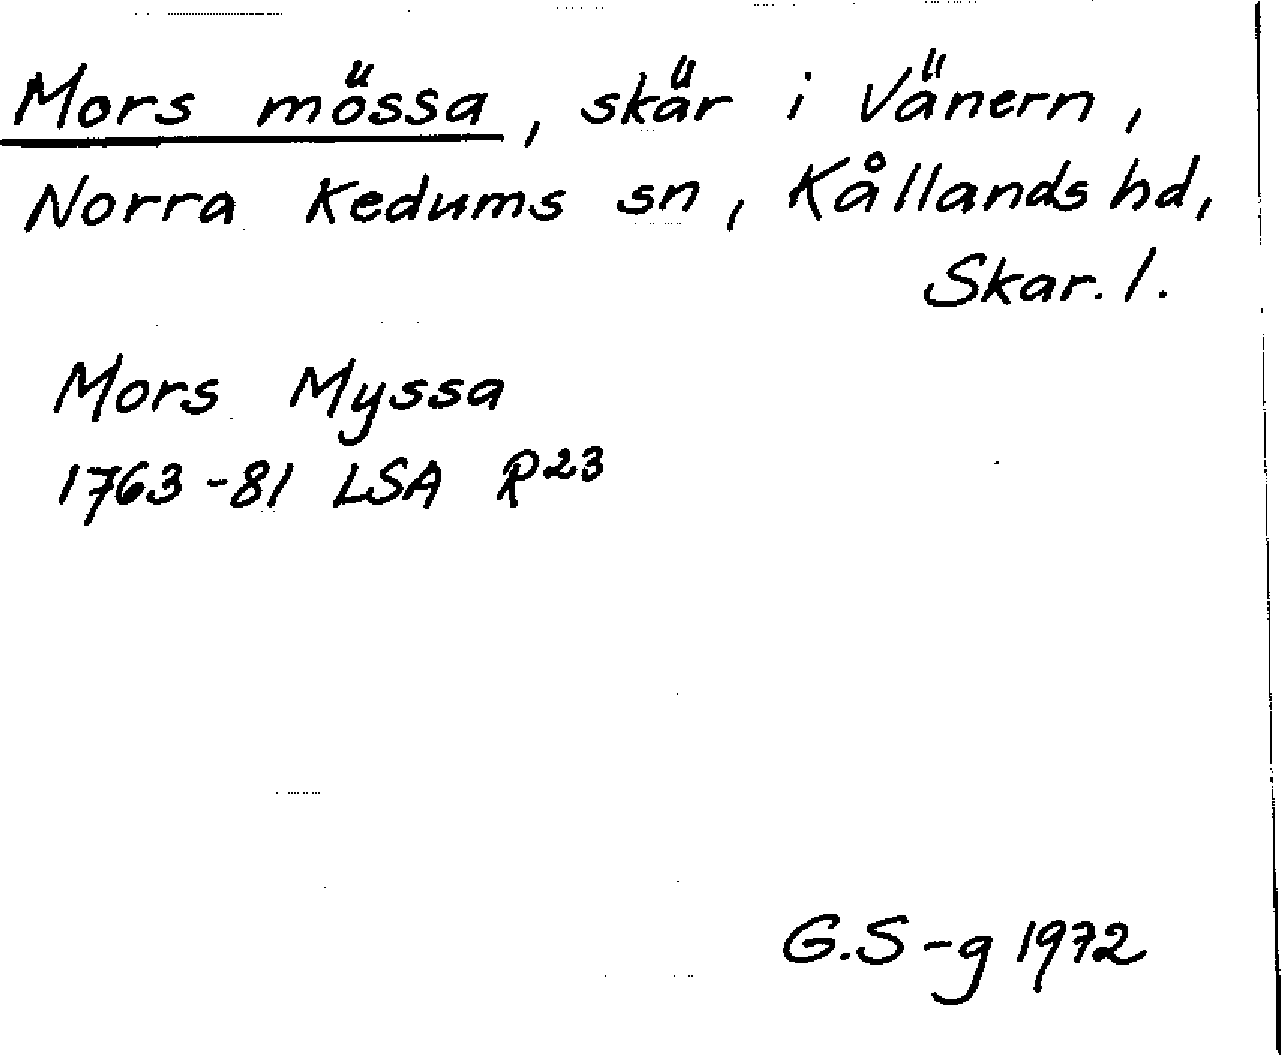 Mors mössa, skär i Vänern,
Norra Kedums sn, Kållands hd,
Skar. l.
Mors Myssa
1763-81 LSA R23
G.S-g 1972